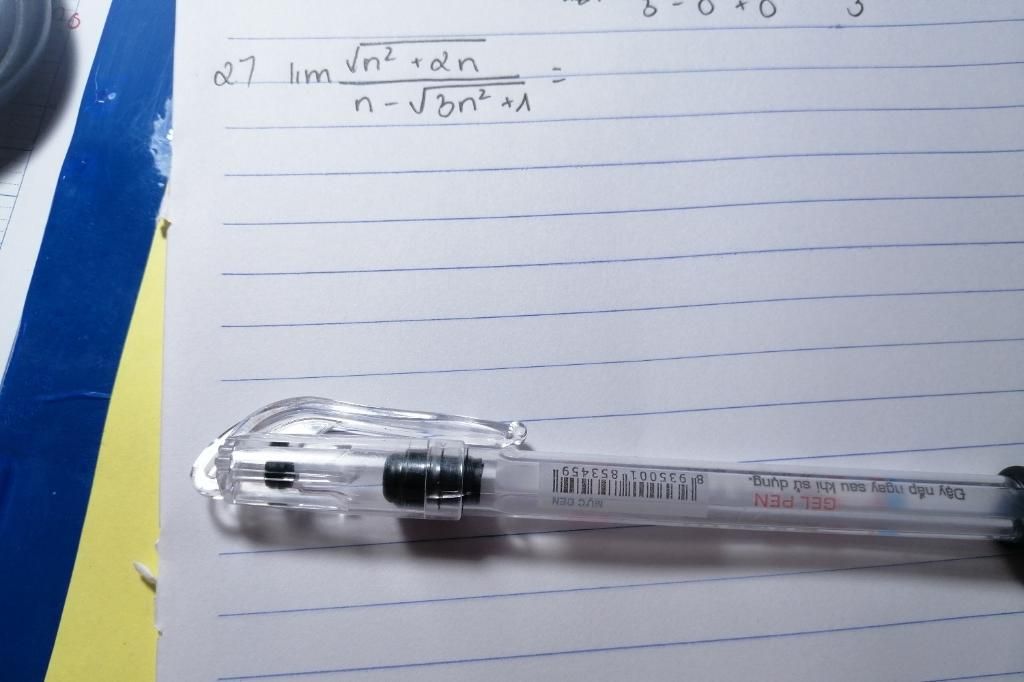 3 - 0 + 0 3
27 lim √n² + 2n / n - √3n² + 1 =
8 935001 853459
MỰC ĐEN
GEL PEN
Đậy nắp ngay sau khi sử dụng.